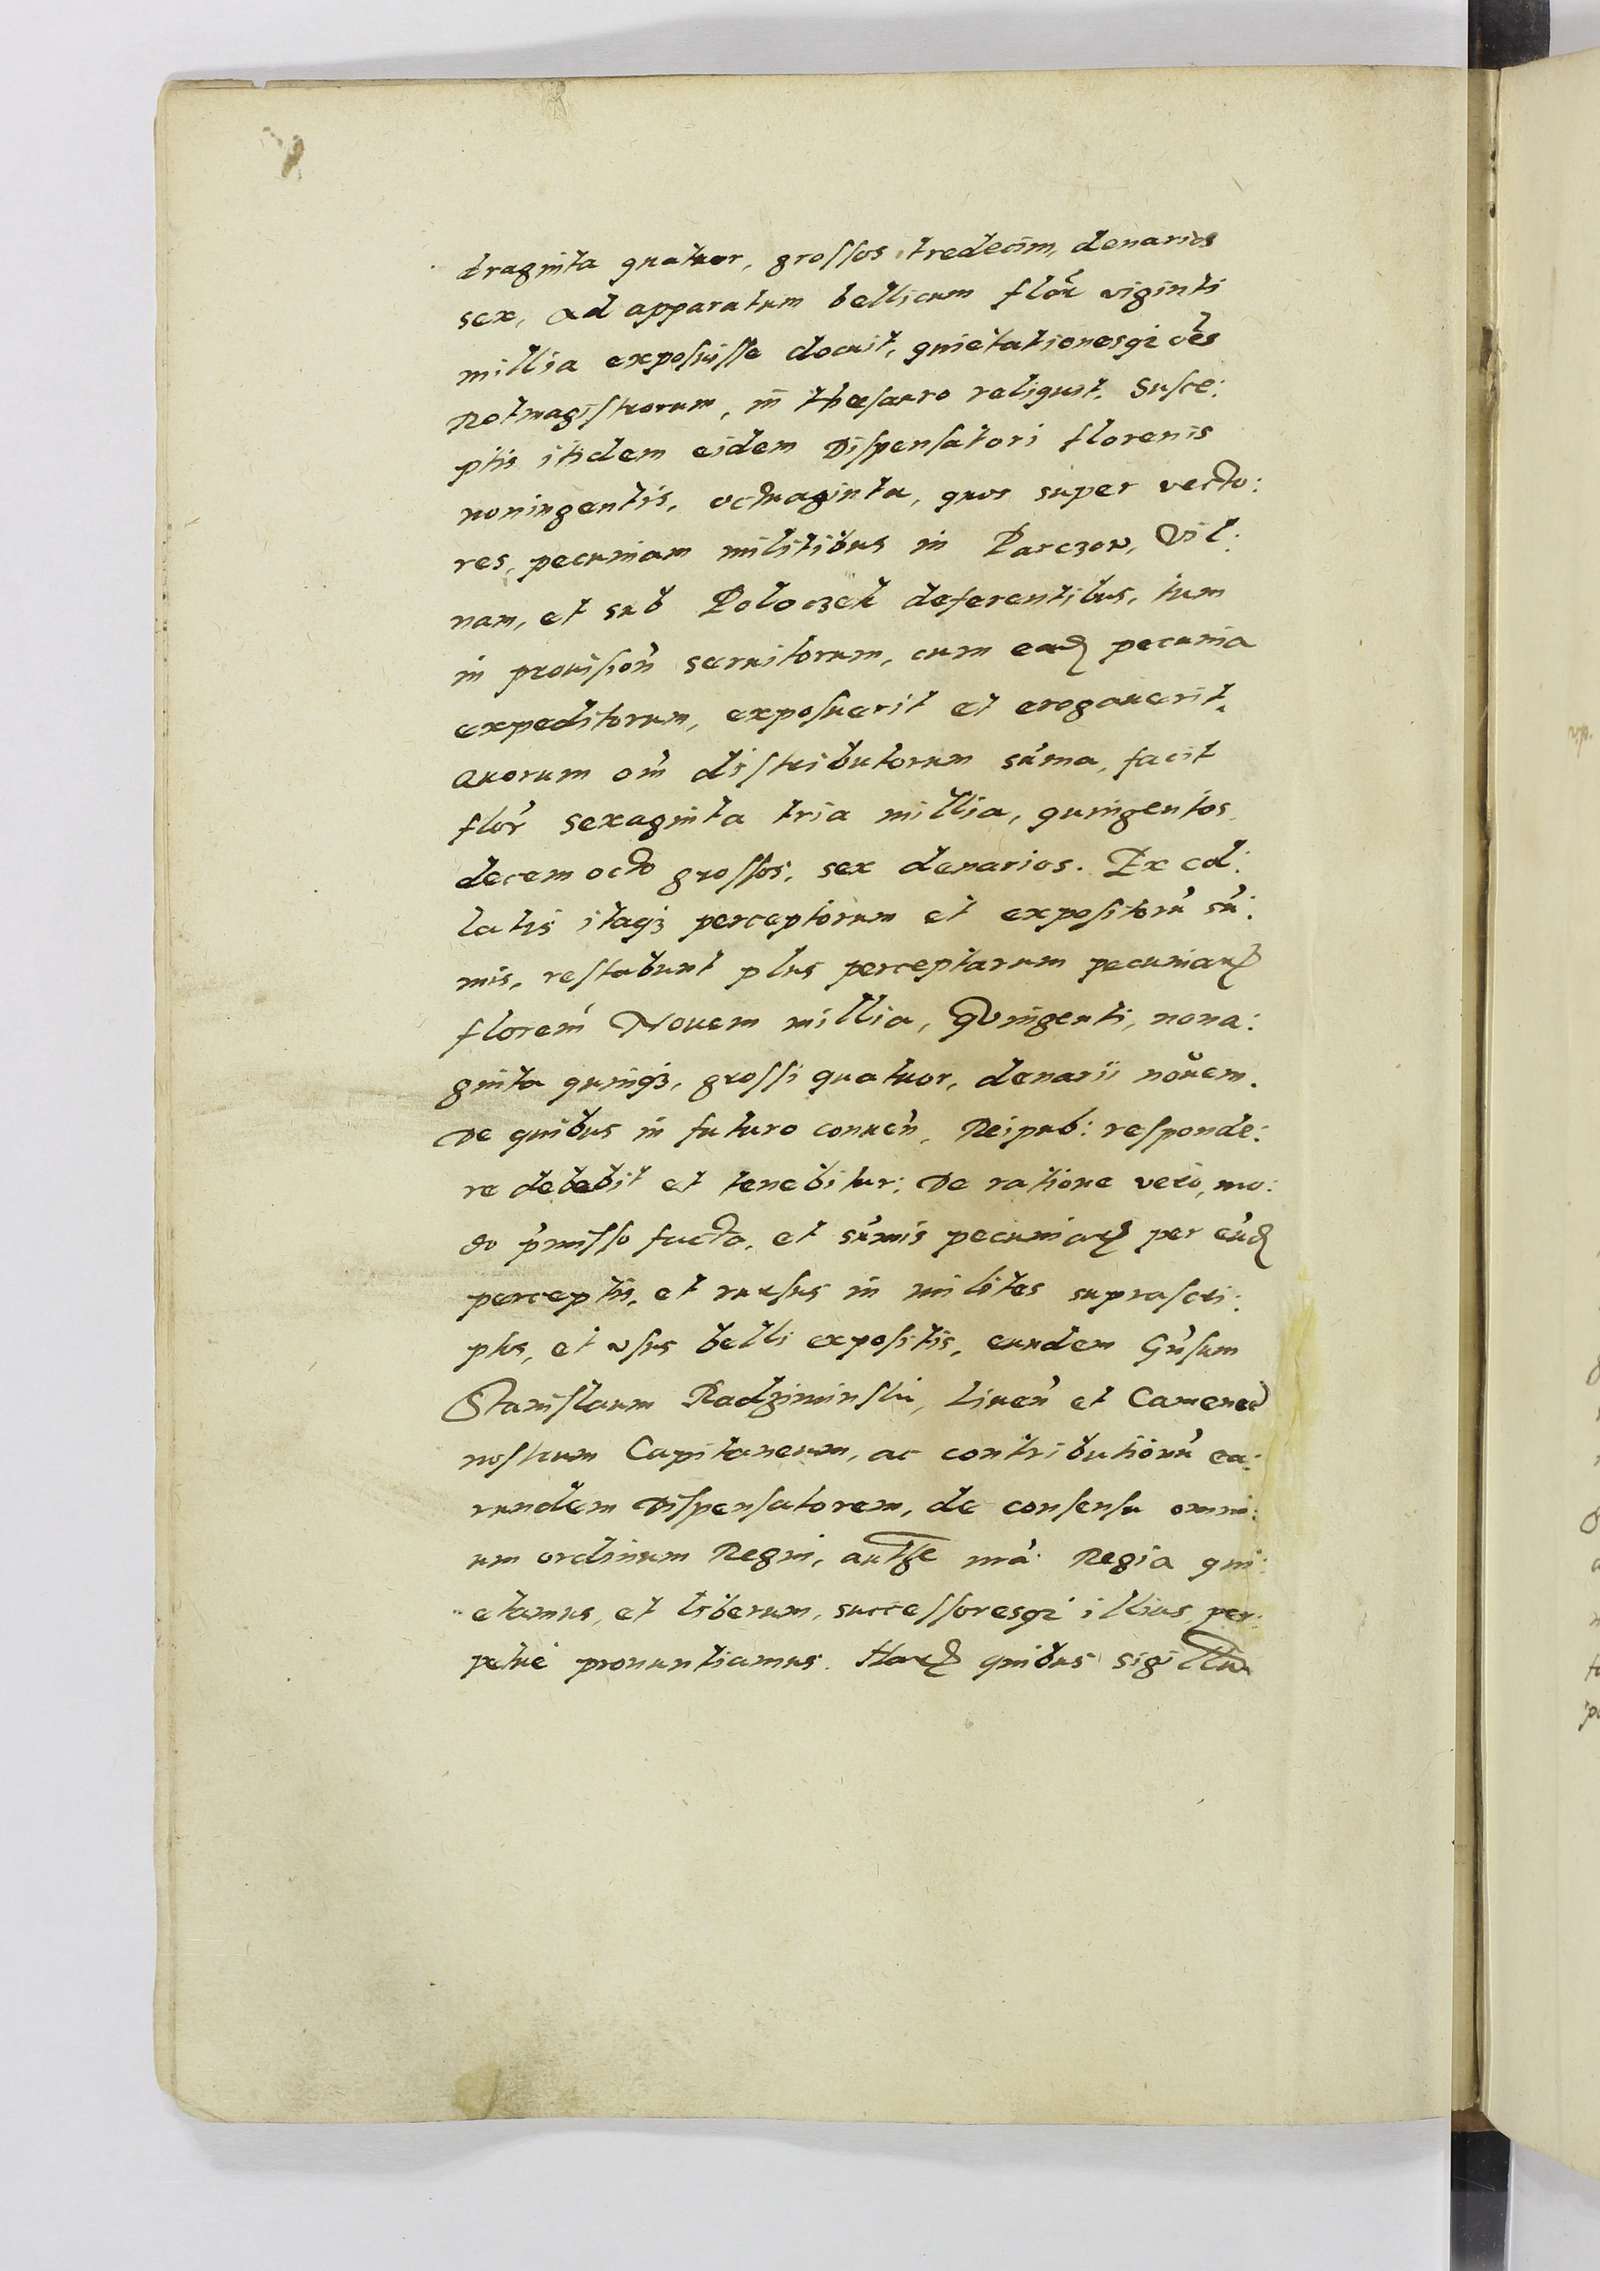 draginta quatuor, grossos tredecim, denarios
sex, ad apparatum bellicum flor̃ viginti
millia exposuisse docuit, quietationesqȝ oẽs
Rotmagistrorum, in thesauro reliquit. Susce:
ptis itidem eidem Dispensatori florenis
noningentis, octuaginta, quos super vecto:
res, pecuniam militibus in Parczow, Vil:
nam, et sub Poloczek deferentibus, tum
in prouision̄ seruitorum, cum ead pecunia
expeditorum, exposuerit et erogauerit.
Quorum om̄ distributorum sum̄a, facit
flor̄ sexaginta tria millia, quingentos
decem octo grossos, sex denarios. Ex col:
latis itaqȝ perceptorum et expositorū sū:
mis, restabunt plus perceptarum pecuniarꝝ
floren̄ Nouem millia, Quingenti, nona:
ginta quinqȝ, grossi quatuor, denarii nouem.
De quibus in futuro conuen̄, Reipub: responde:
re debebit et tenebitur: De ratione vero, mo:
do p̄misso facta, et sūmis pecuniarꝝ per eūd
perceptis, et rursus in milites suprascri:
ptos, et vsus belli expositis, eundem Gn̄sum
Stanislaum Radziminski, Liuen̄ et Camenec̄
nostrum Capitaneum, ac contributionū ea:
rundem Dispensatorem, de consensu omni:
um ordinum Regni, aut̄te nr̄a Regia qui:
etamus, et liberum, successoresqȝ illius per:
petue pronuntiamus. Harꝝ quibus sigillū